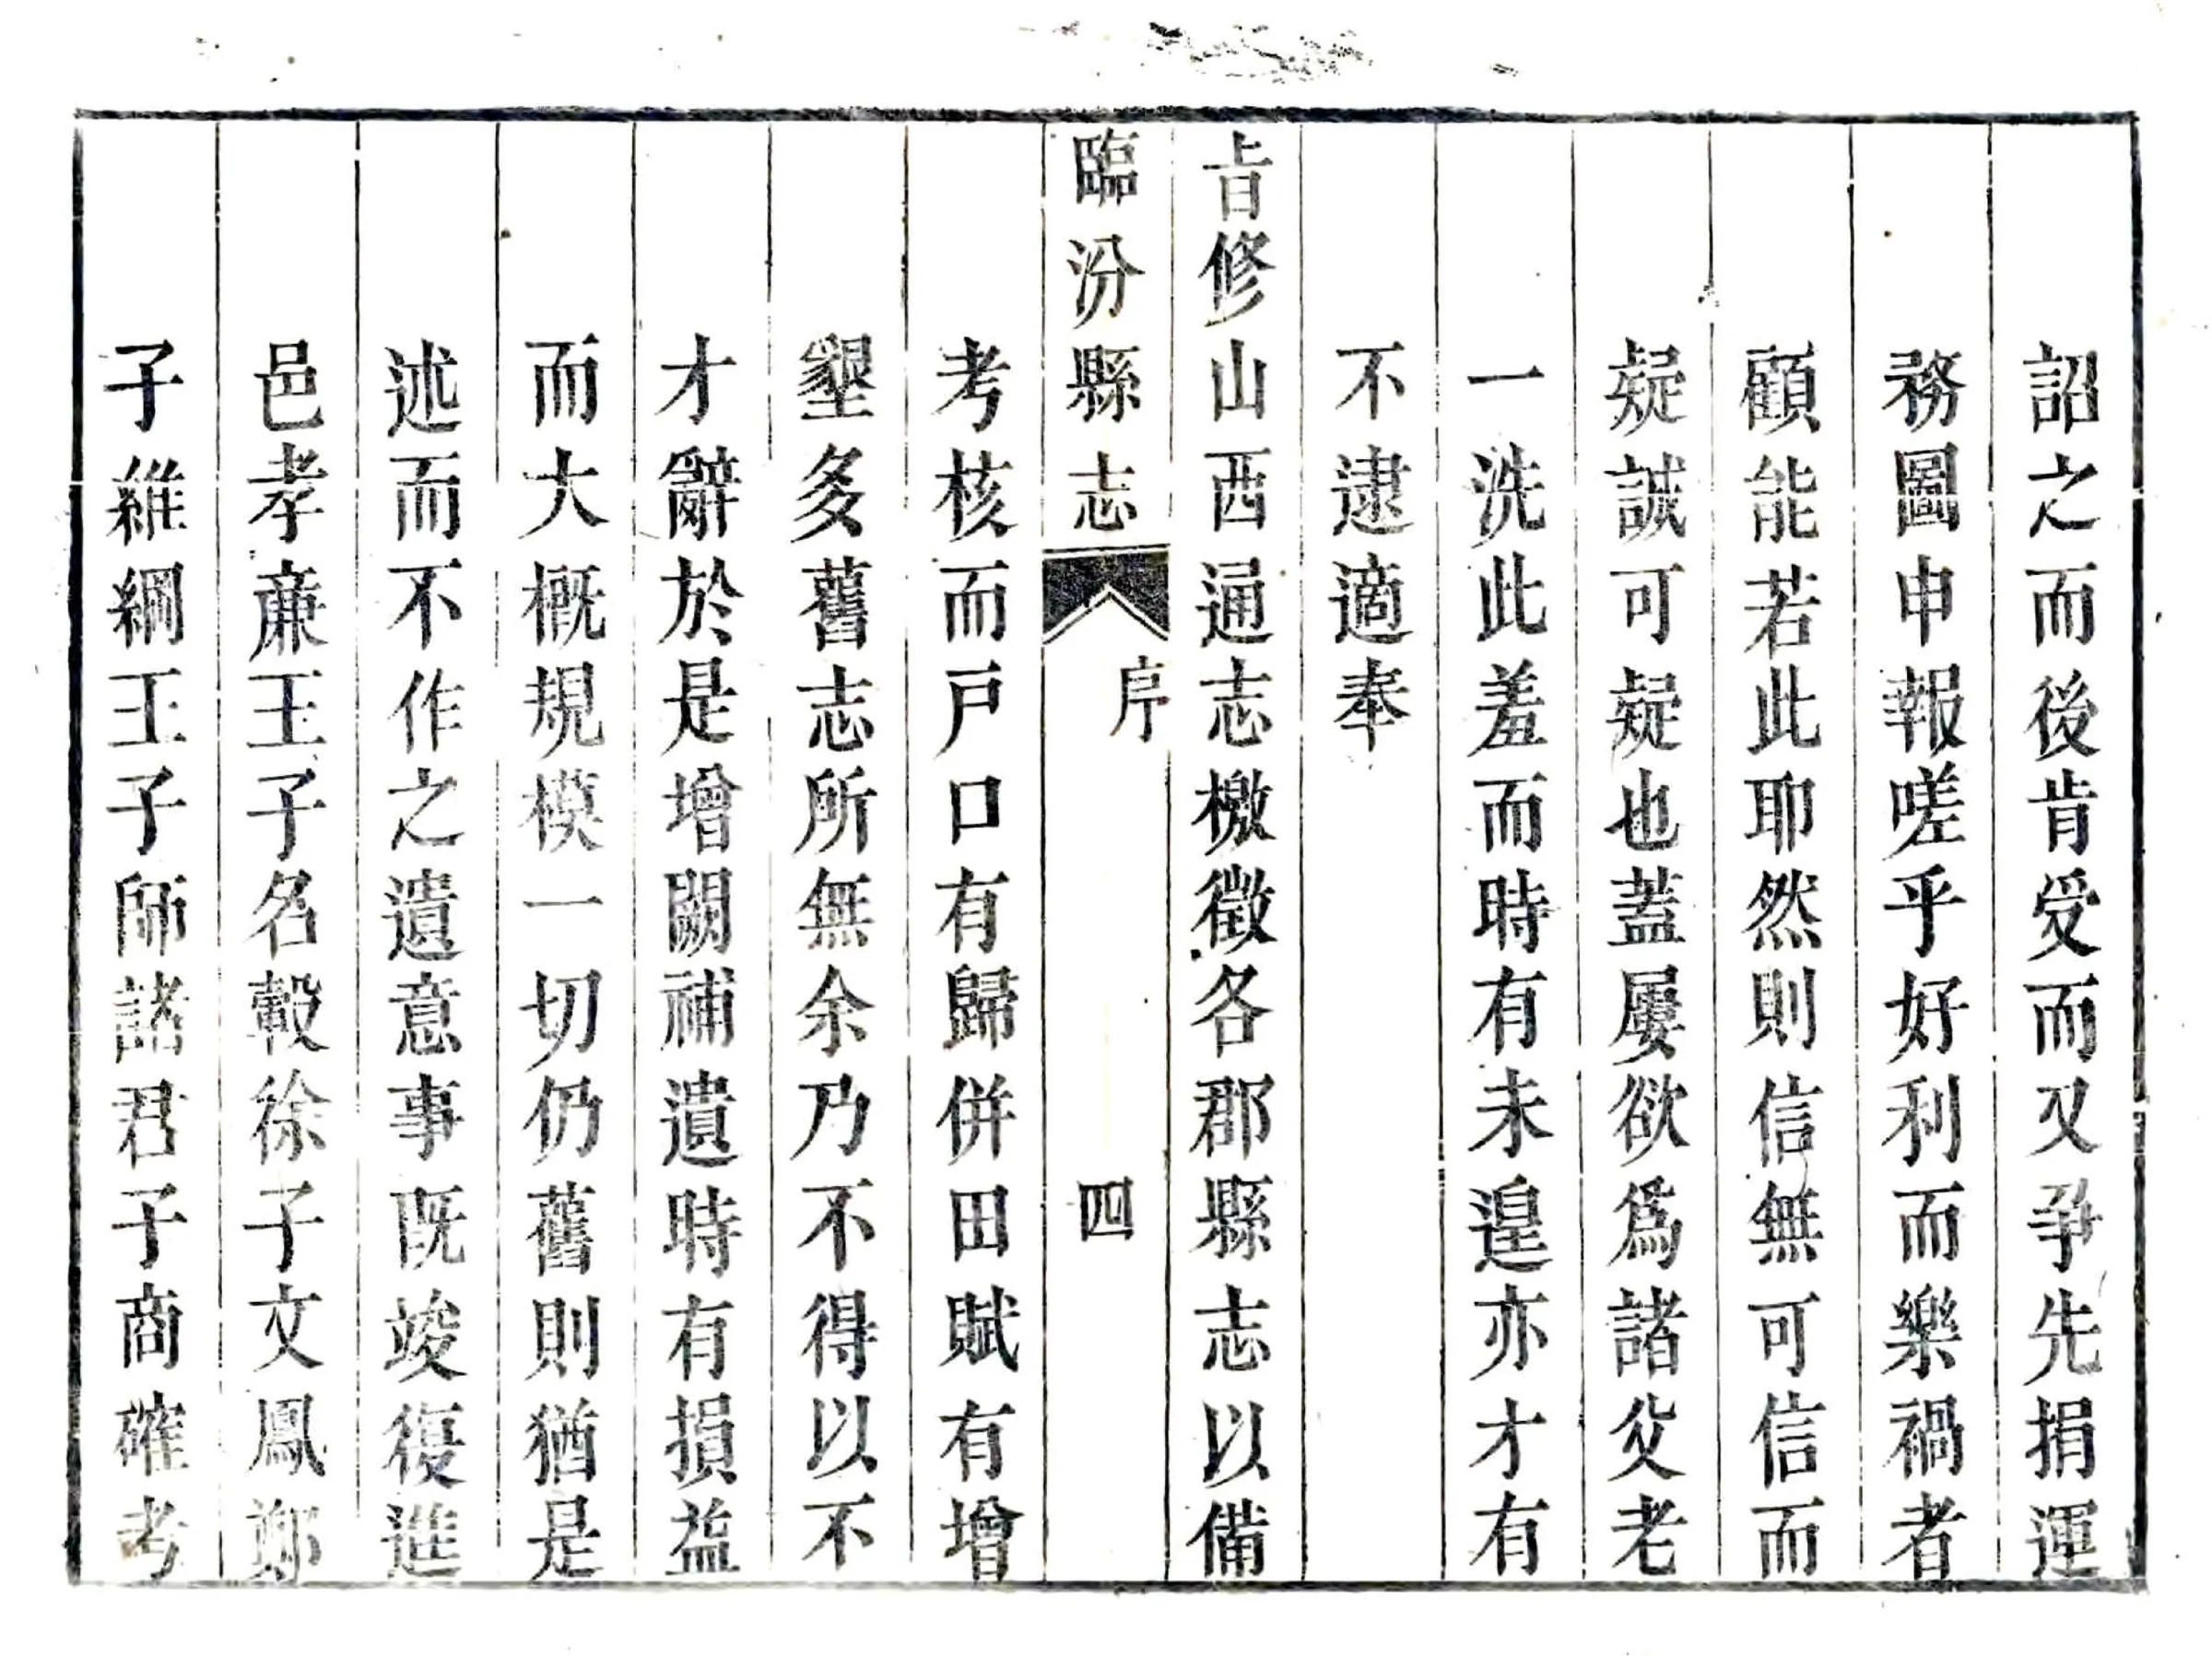 詔之而後肯受而又爭先捐運
務圖申報嗟乎好利而樂禍者
顧能若此耶然則信無可信而
疑誠可疑也蓋屢欲爲諸父老
一洗此羞而時有未遑亦才有
不逮適奉
旨修山西通志檄徵各郡縣志以備
臨汾縣志
序
四
考核而戸口有歸併田賦有增
墾多舊志所無余乃不得以不
才辭於是增闕補遺時有損益
而大概規模一切仍舊則猶是
述而不作之遺意事既竣復進
邑孝廉王子名轂徐子文鳳鄭
子維綱王子師諸君子商確考